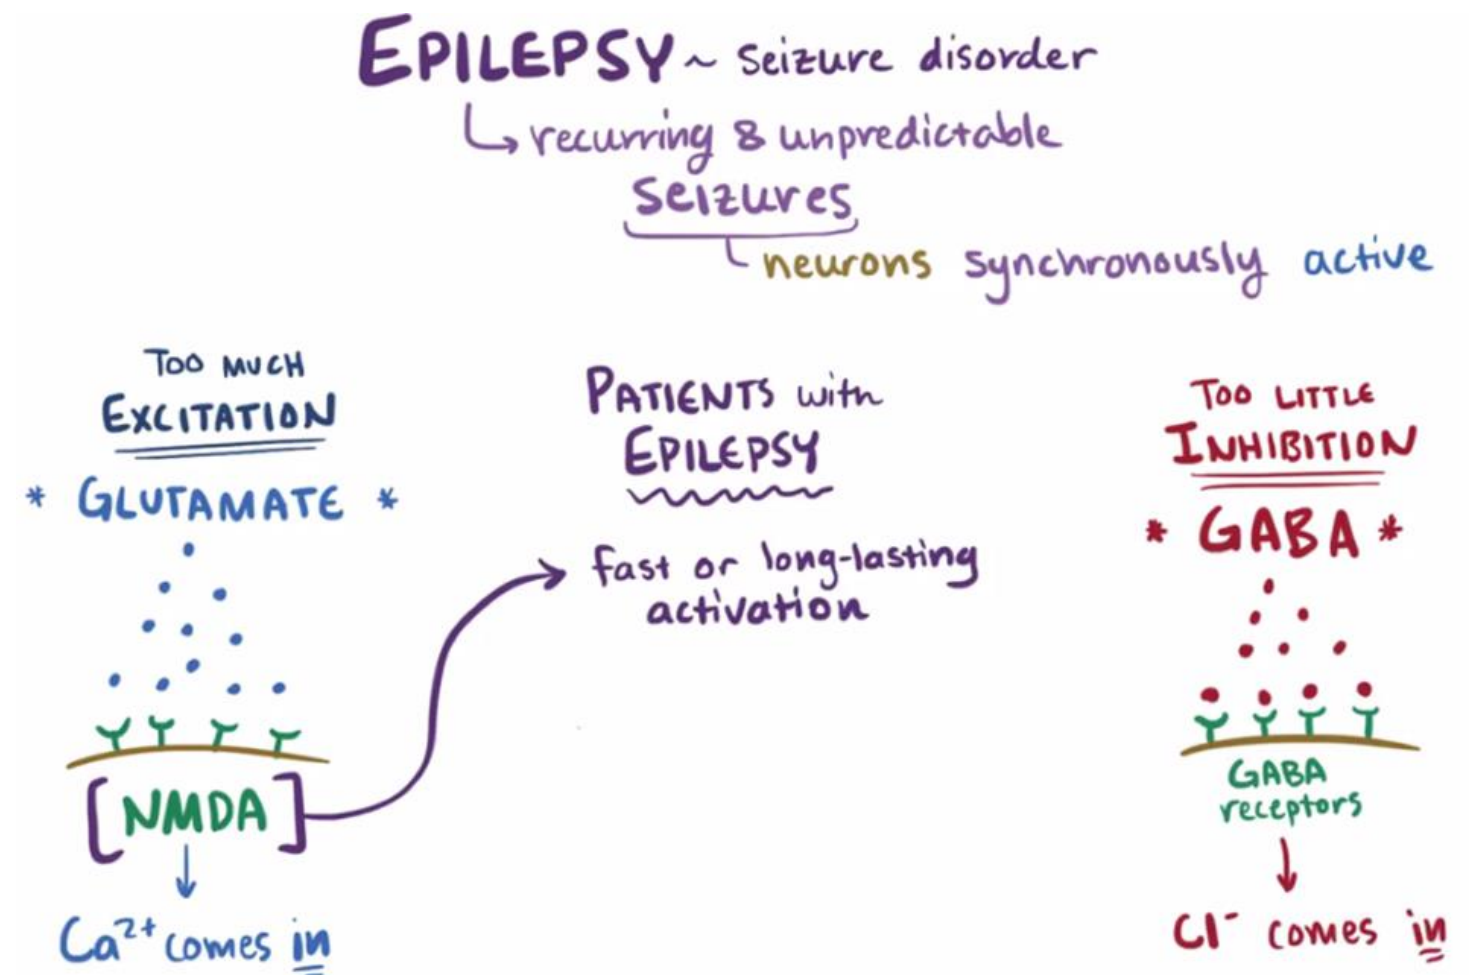 EPILEPSY ~ seizure disorder
recurring & unpredictable
seizures
neurons synchronously active
TOO MUCH
EXCITATION
* GLUTAMATE *
[NMDA]
Ca²⁺ comes in
PATIENTS with
EPILEPSY
fast or long-lasting
activation
TOO LITTLE
INHIBITION
* GABA *
GABA
receptors
Cl⁻ comes in